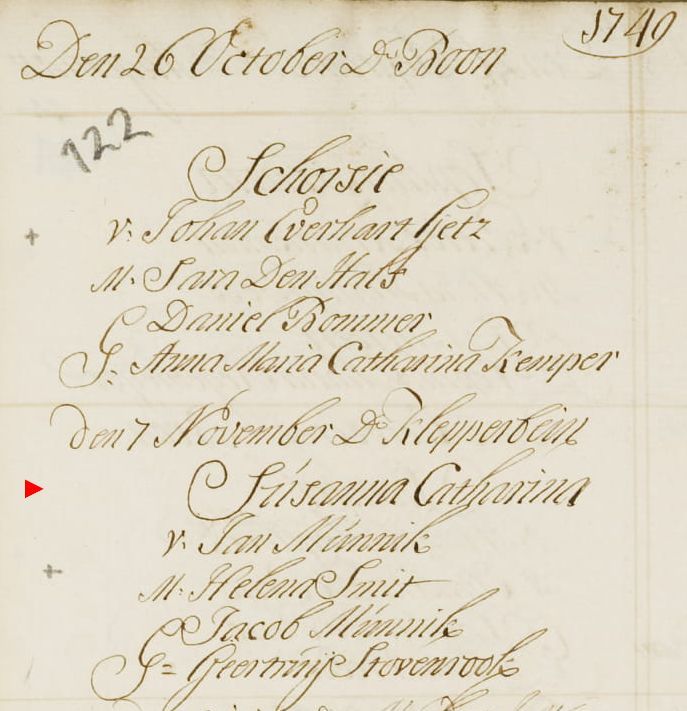 1749
Den 26 October Ds Boon
122
Schorsie
v: Johan Everhart Getz
M: Sara Den Hals
G Daniel Bommer
G: Anna Maria Catharina Kemper
den 7 November Ds Klepperbein
Súsanna Catharina
v: Jan Múnnik
M: Helena Smit
G Jacob Múnnik
G= Geertruij Stovenrook